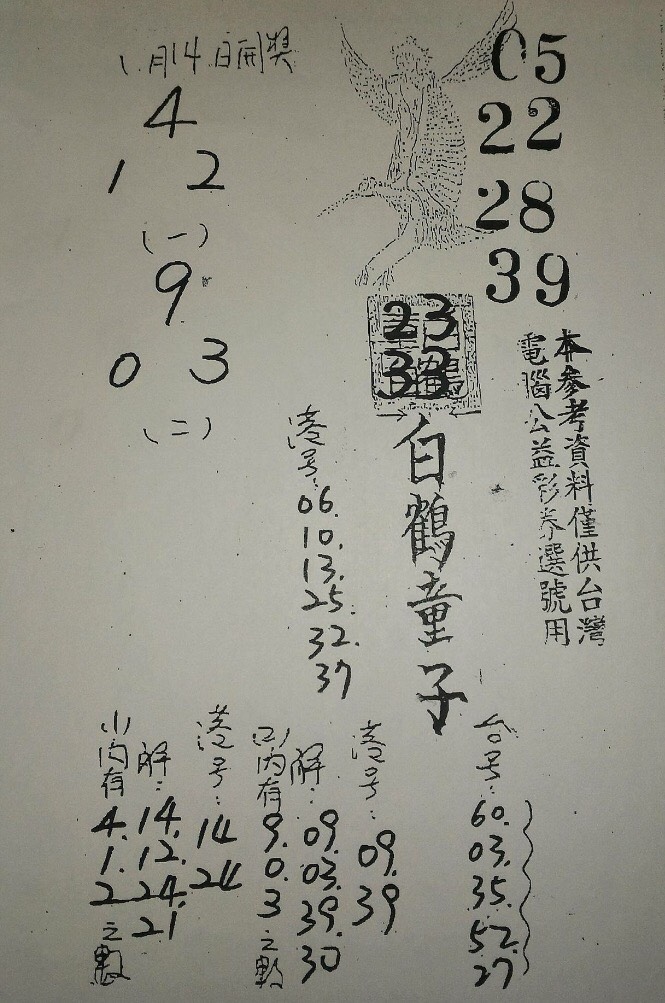 1月14日開獎
4
1 2
(一)
9
0 3
(二)
05
22
28
39
23
33
本參考資料僅供台灣
電腦公益彩券選號用
白鶴童子
港号:
06.
10.
13.
25.
32.
37
台号:
60.
03.
35.
52.
27
港号:
09.
39
解:
09.
03.
39.
30
(2)內有
9.
0.
3
之數
港号:
14
24
解:
14.
12.
24.
21
(1)內有
4.
1.
2
之數